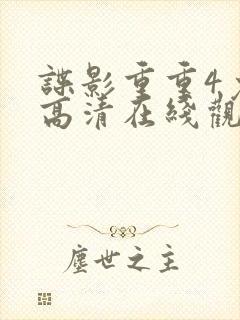 諜影重重4
高清在綫觀
塵世之主